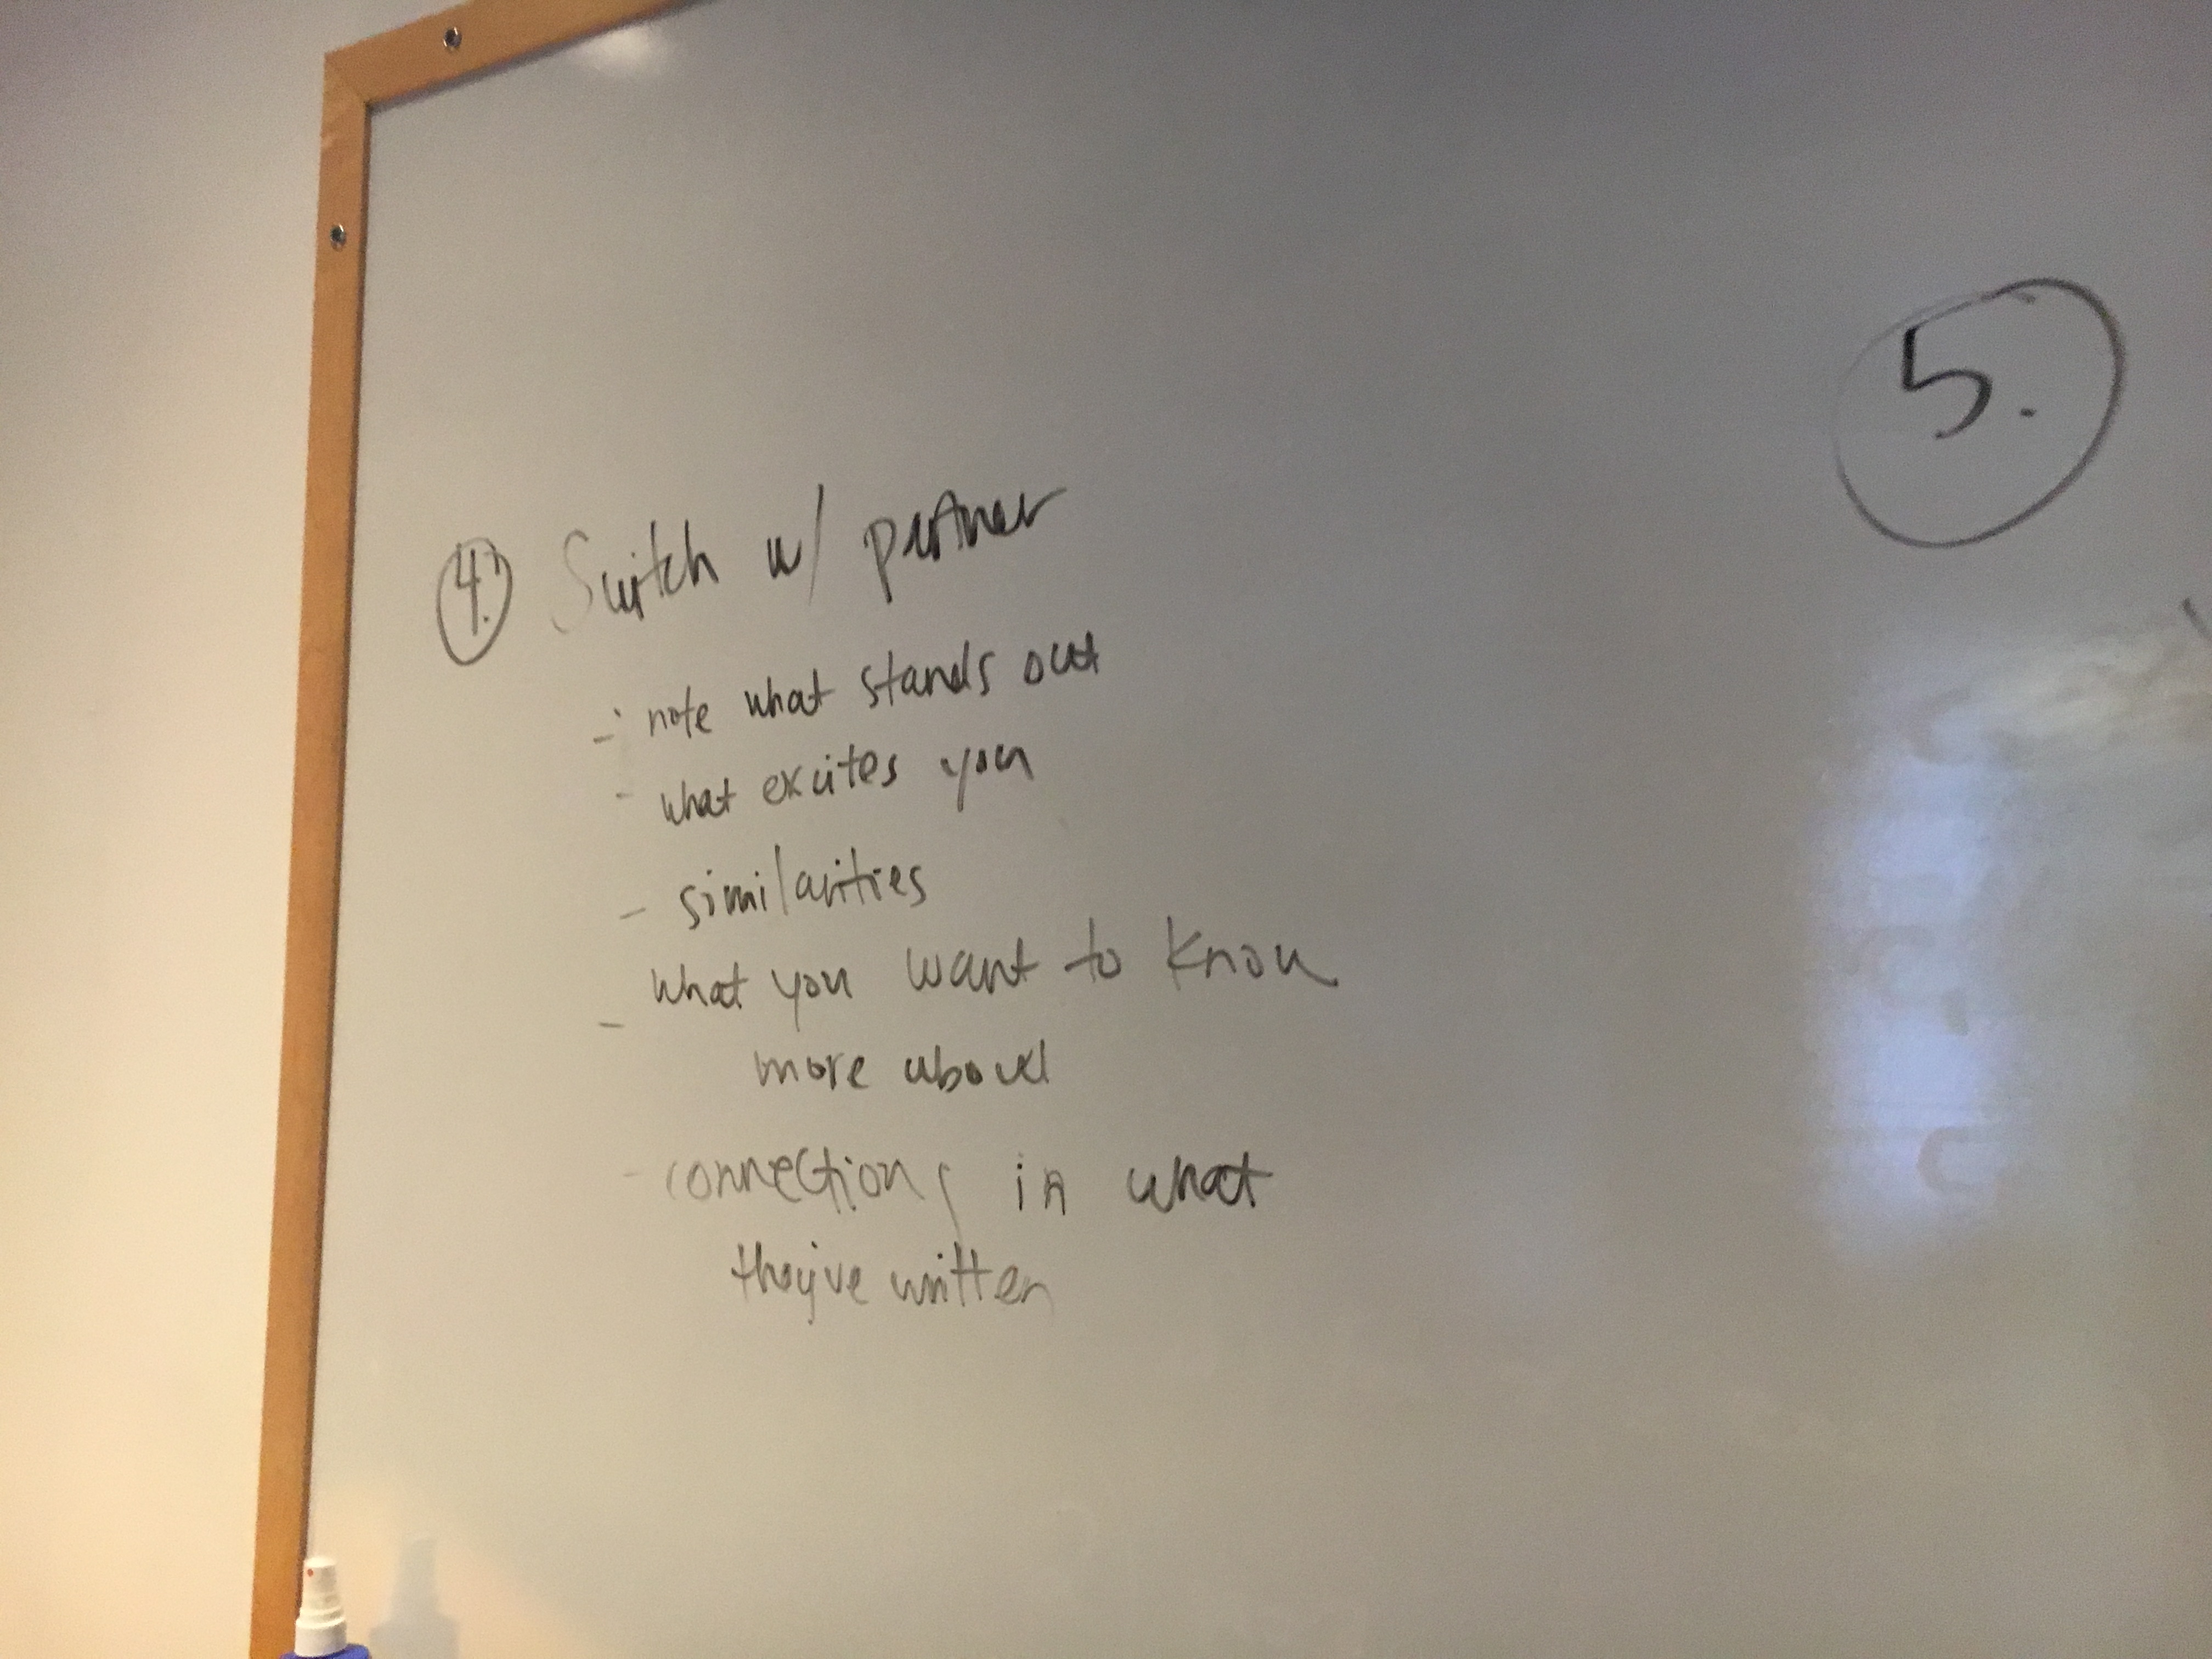 4. Switch w/ partner
- note what stands out
- what excites you
- similarities
- what you want to know
more about
- connections in what
they've written
5.